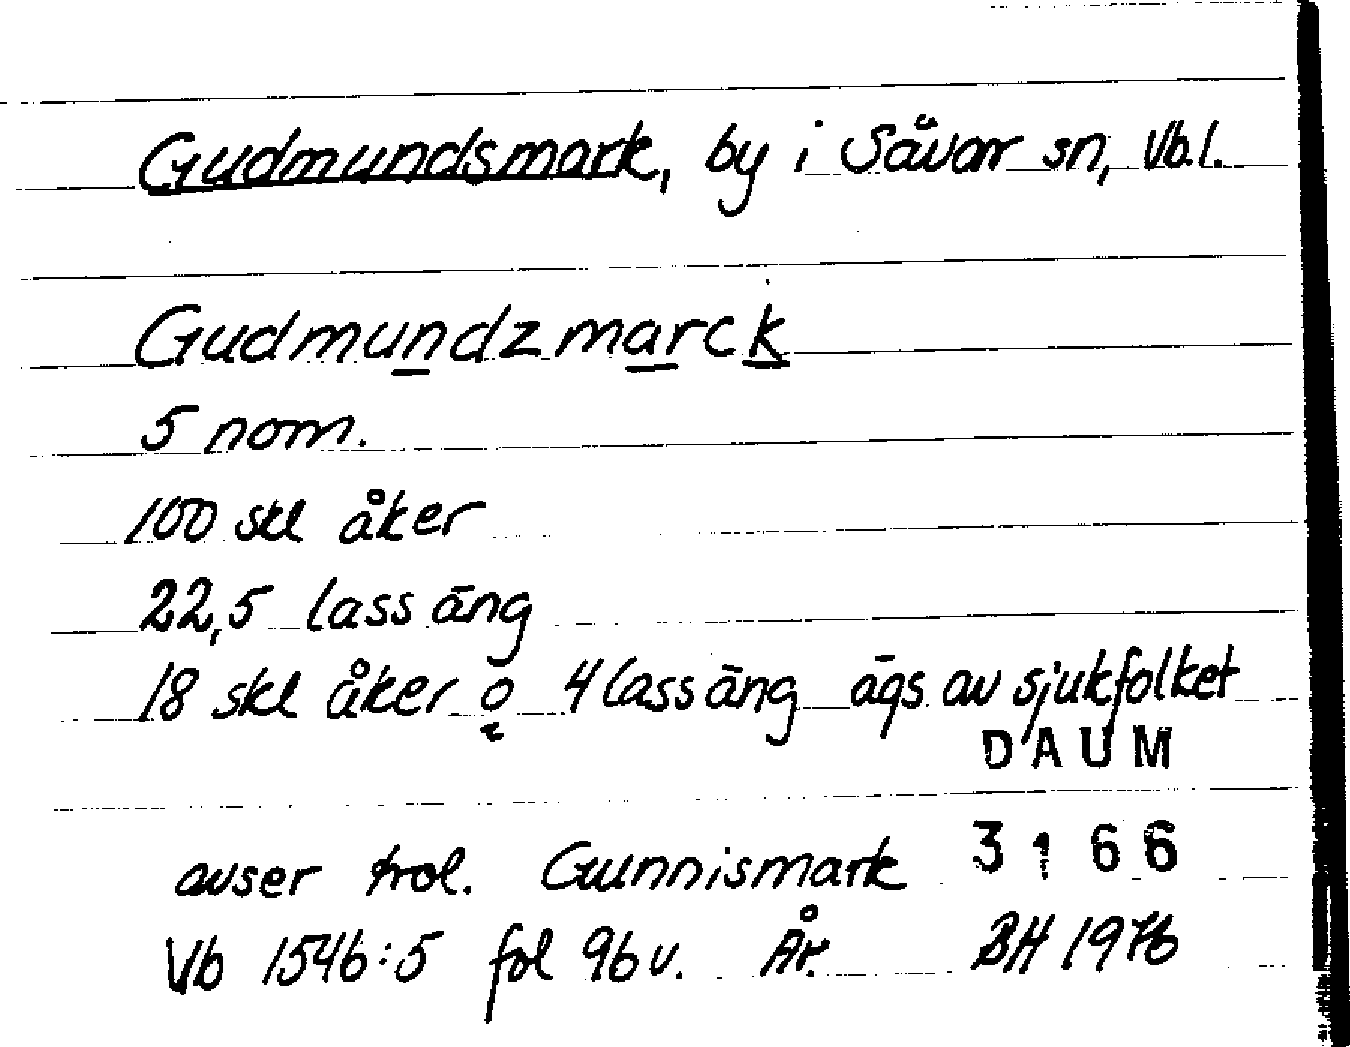 Gudmundsmark, by i Sävar sn, Vb.l.
Gudmundzmarck
5 nom.
100 skl åker
22,5 lass äng
18 skl åker o 4 lass äng ägs av sjukfolket
DAUM
3166
avser trol. Gunnismark
Vb 1546:5 fol 96 v. År. BH 1976